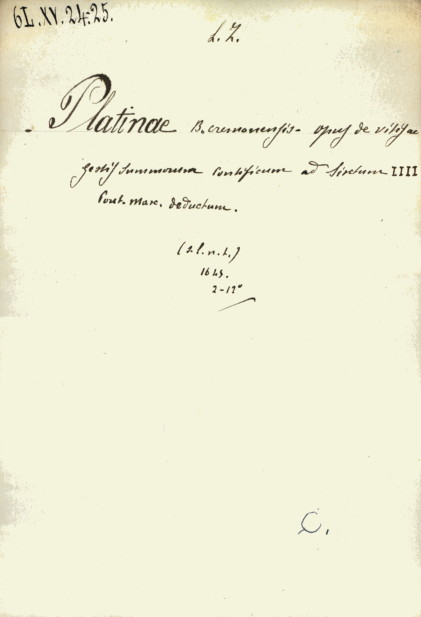 6L.XV.24.25.
L.Z.
Platinae B. cremonensis - opus de vitis ac
gestis Summorum Pontificum ad Sixtum IIII
Pont. Max. deductum.
(s.l.n.t.)
1645.
2-12°
C.